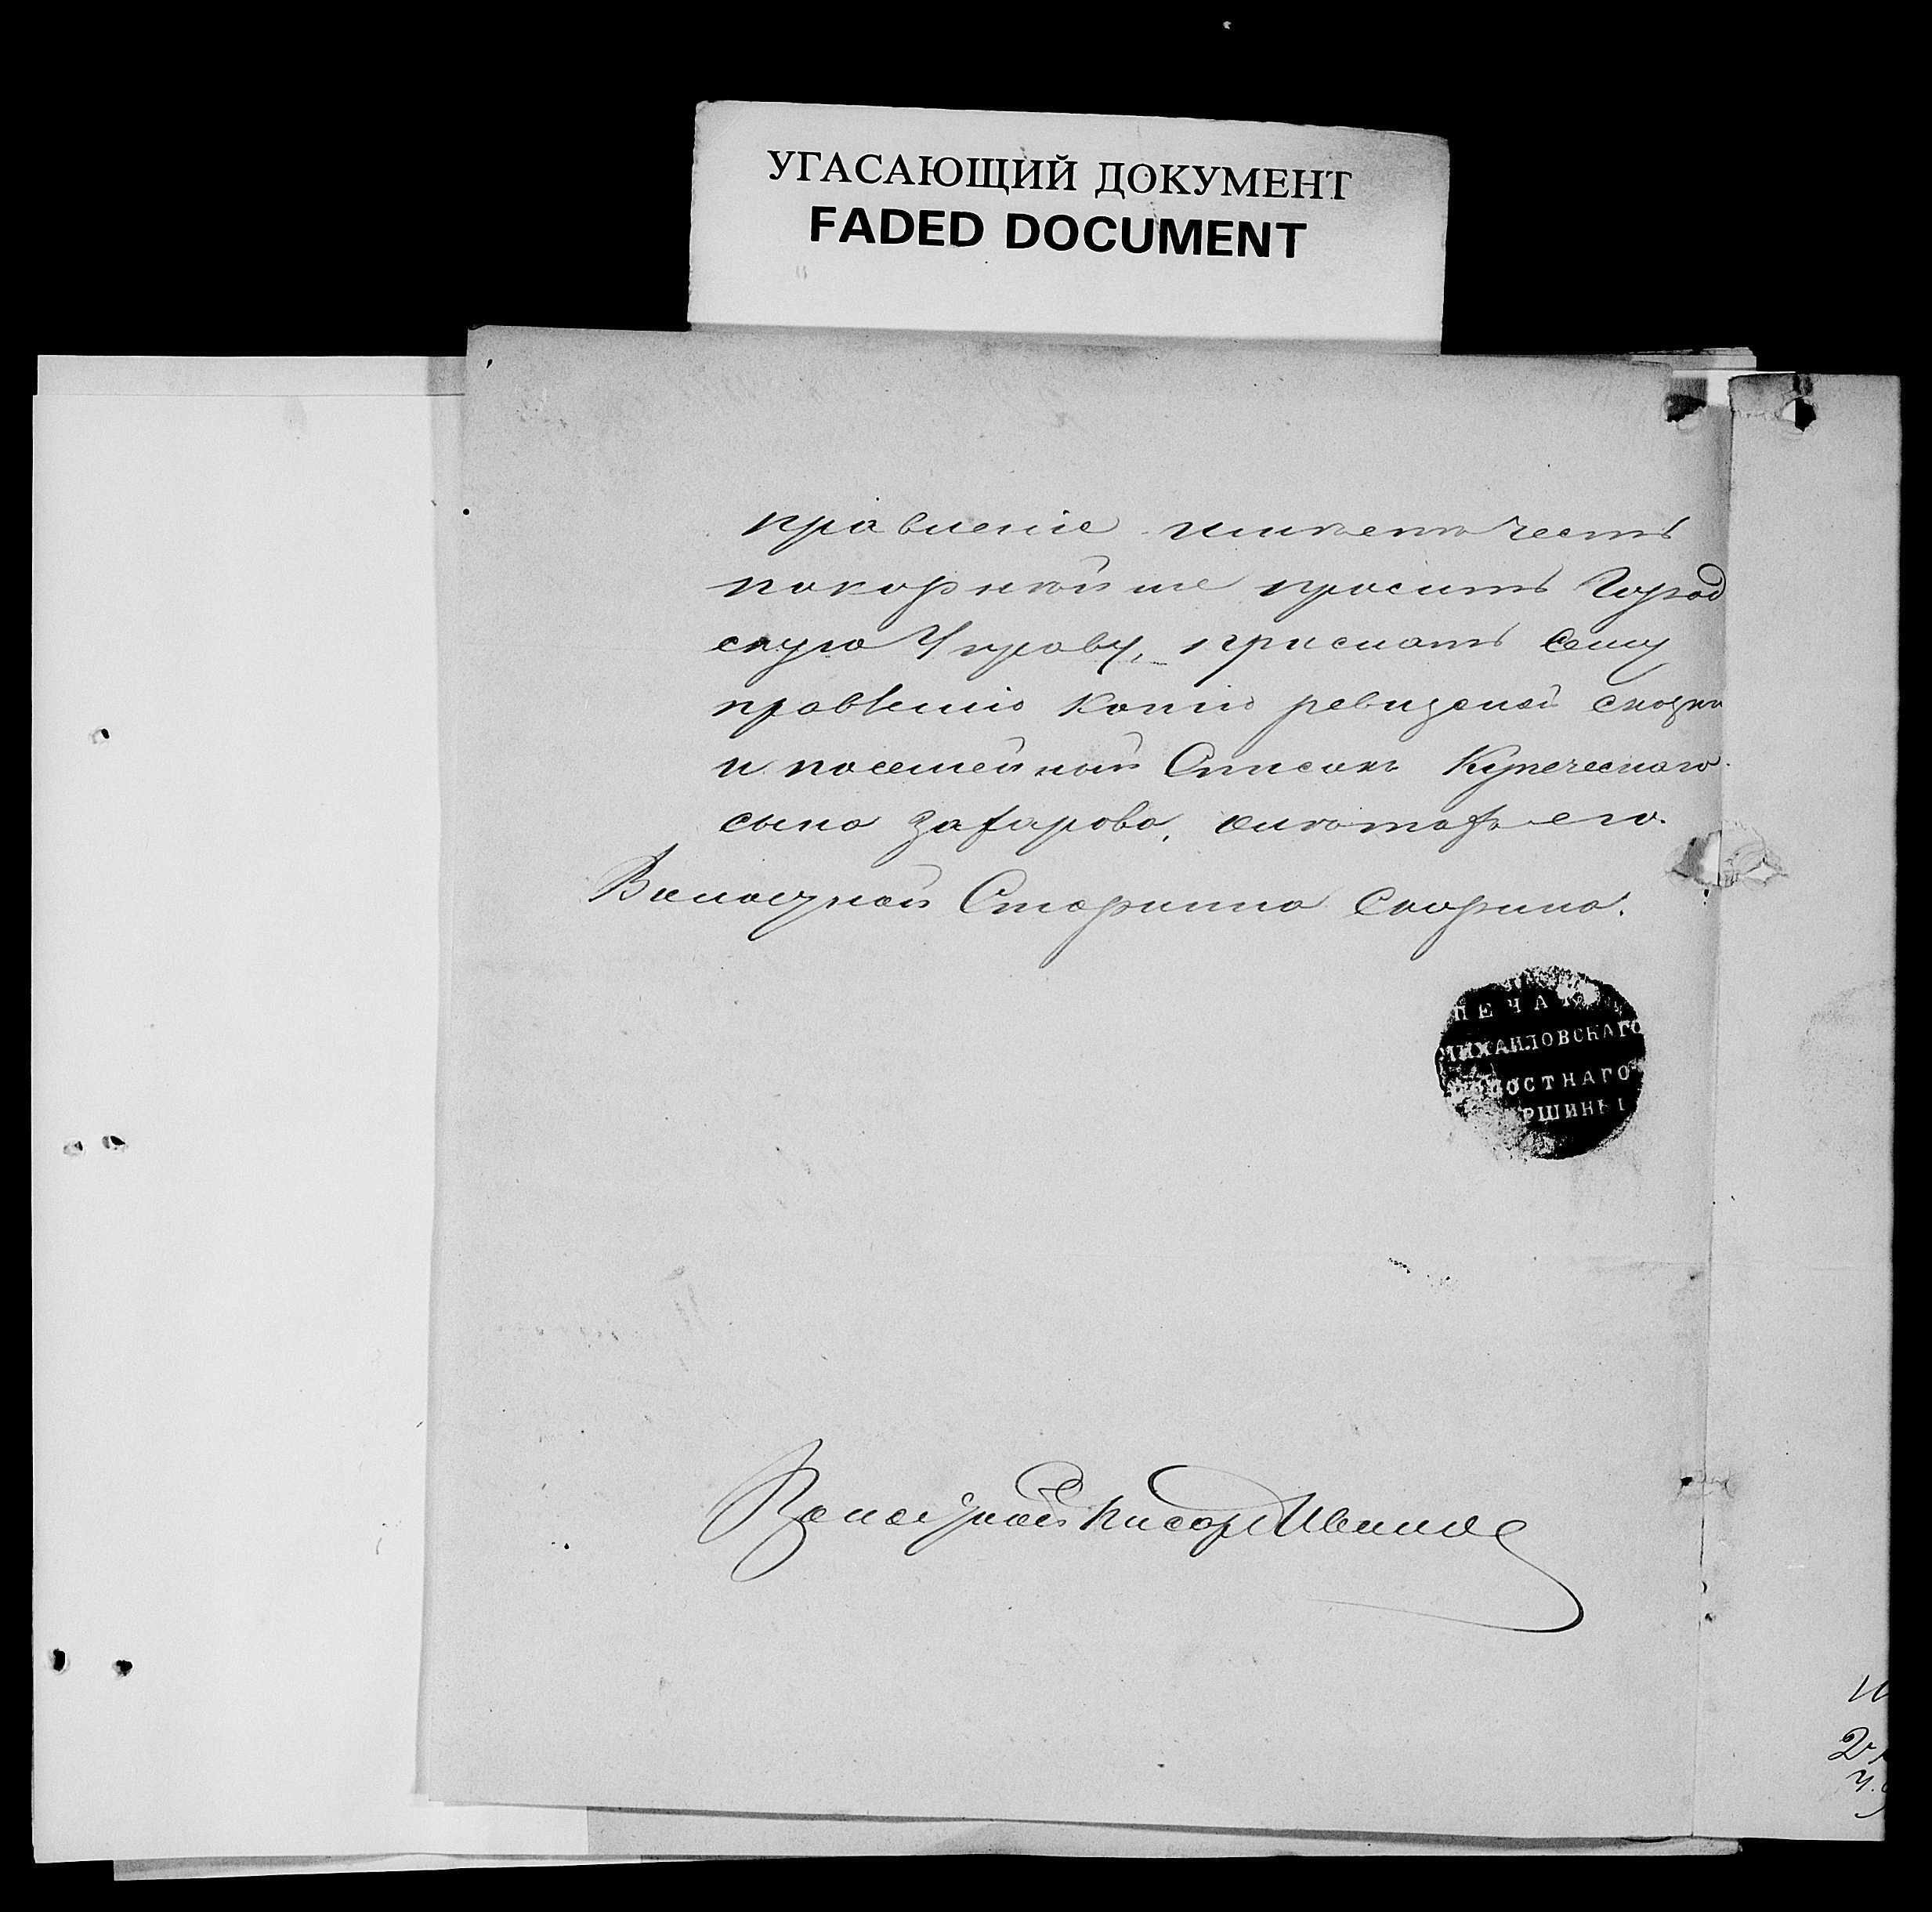 УГАСАЮЩИЙ ДОКУМЕНТ
FADED DOCUMENT
правленіе имѣетъ честь
покорнѣйше просить Город
скую Управу, прислать сему
правленію копію ревизской сказки
и посемейный Списокъ Купеческаго
сына Захарова,
Волостной Старшина Скорина.
ПЕЧАТЬ
МИХАИЛОВСКАГО
ВОЛОСТНАГО
РШИНЫ
Волостной Писарь